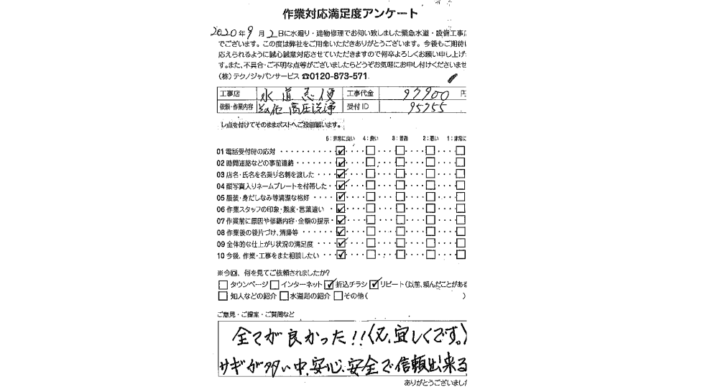 作業対応満足度アンケート
2020年9月2日に水廻り・建物修理でお伺い致しました緊急水道・設備工事に
でございます。この度は弊社をご用命いただきありがとうございます。今後もご期待に
応えられるように誠心誠意対応させていただきますので何卒よろしくお願い申し上げ
す。また、不具合・ご不明な点等がございましたらどうぞお気軽にお申し付けくださいませ
(株)テクノジャパンサービス ☎0120-873-571
工事店 水道急便 工事代金 97900 円
依頼・作業内容 高圧洗浄 受付ID 95755
レ点を付けてそのままポストへご投函願います。
5:非常に良い 4:良い 3:普通 2:悪い 1:非常に
01 電話受付時の応対
02 時間連絡などの事前連絡
03 店名・氏名を名乗り名刺を渡した
04 顔写真入りネームプレートを付帯した
05 服装・身だしなみ等清潔な格好
06 作業スタッフの印象・態度・言葉遣い
07 作業前に原因や修繕内容・金額の提示
08 作業後の後片づけ、清掃等
09 全体的な仕上がり状況の満足度
10 今後、作業・工事をまた相談したい
※今回、何を見てご依頼されましたか?
タウンページ インターネット 折込チラシ リピート(以前、頼んだことがあ
知人などの紹介 水道局の紹介 その他(
ご意見・ご提案・ご質問など
全てが良かった!!(又、宜しくです。)
サギが多い中、安心、安全で信頼出来る
ありがとうございました